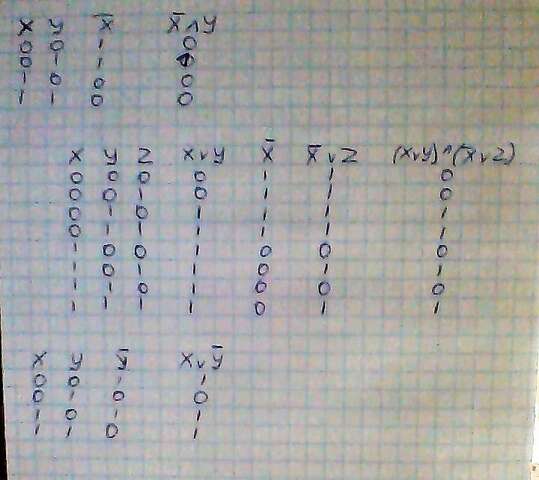 x y x̄ x̄∧y
0 0 1 0
0 1 1 1
1 0 0 0
1 1 0 0
x y z x∨y x̄ x̄∨z (x∨y)∧(x̄∨z)
0 0 0 0 1 1 0
0 0 1 0 1 1 0
0 1 0 1 1 1 1
0 1 1 1 1 1 1
1 0 0 1 0 0 0
1 0 1 1 0 1 1
1 1 0 1 0 0 0
1 1 1 1 0 1 1
x y ȳ x∨ȳ
0 0 1 1
0 1 0 0
1 0 1 1
1 1 0 1